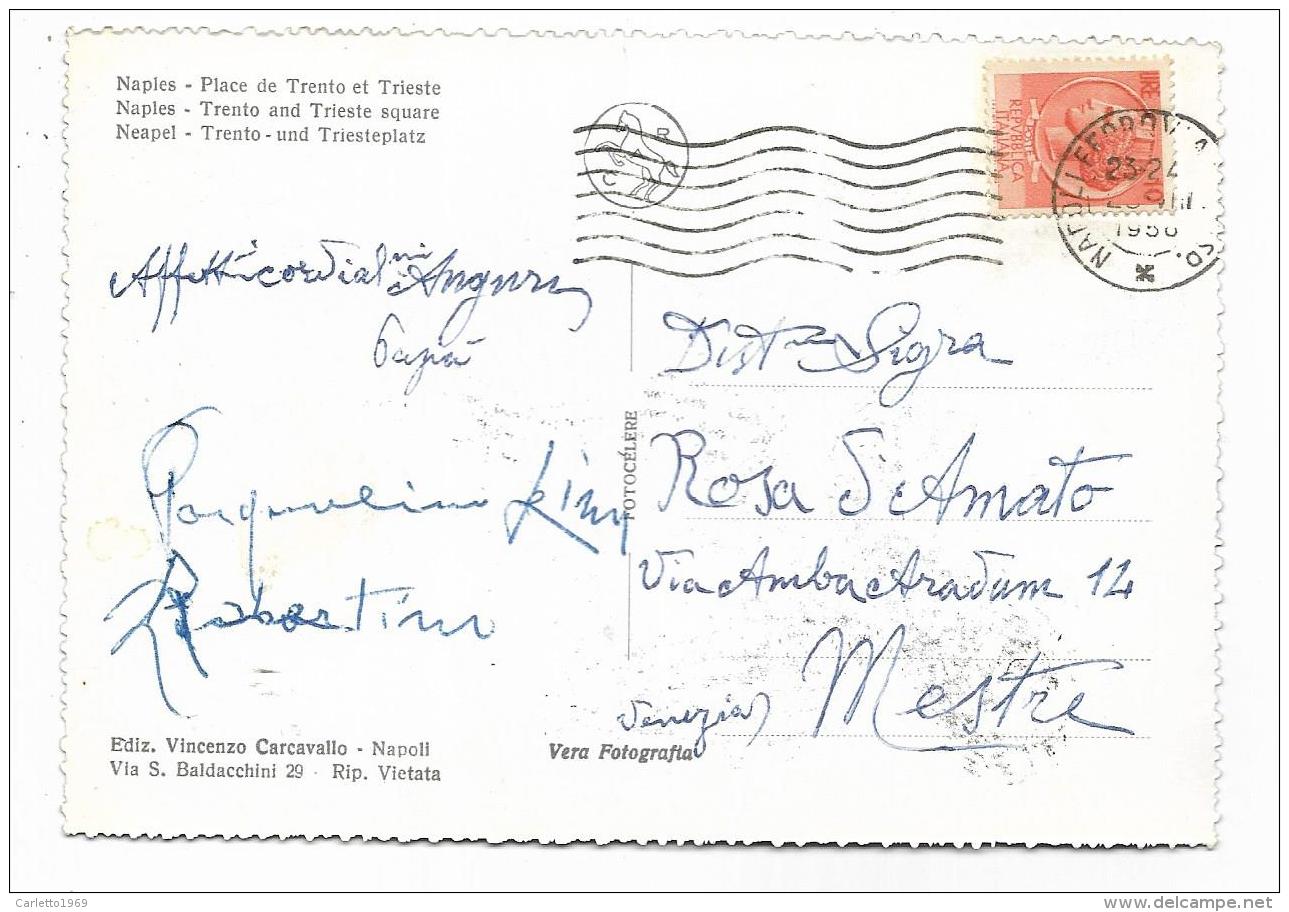 Naples - Place de Trento et Trieste
Naples - Trento and Trieste square
Neapel - Trento - und Triesteplatz
R
C
LIRE 10
REPVBBLICA
ITALIANA
POSTE
23-24
VIII
NAPOLI FERROVIA
Affetti cordialmi Auguri
Papà
Dist Sigra
FOTOCÉLERE
Rosa D'Amato
Pasqualino
Via Amba Aradam 14
Robertino
Mestre
Venezia)
Ediz. Vincenzo Carcavallo - Napoli
Via S. Baldacchini 29 - Rip. Vietata
Vera Fotografia
Carletto1969
delcampe.net